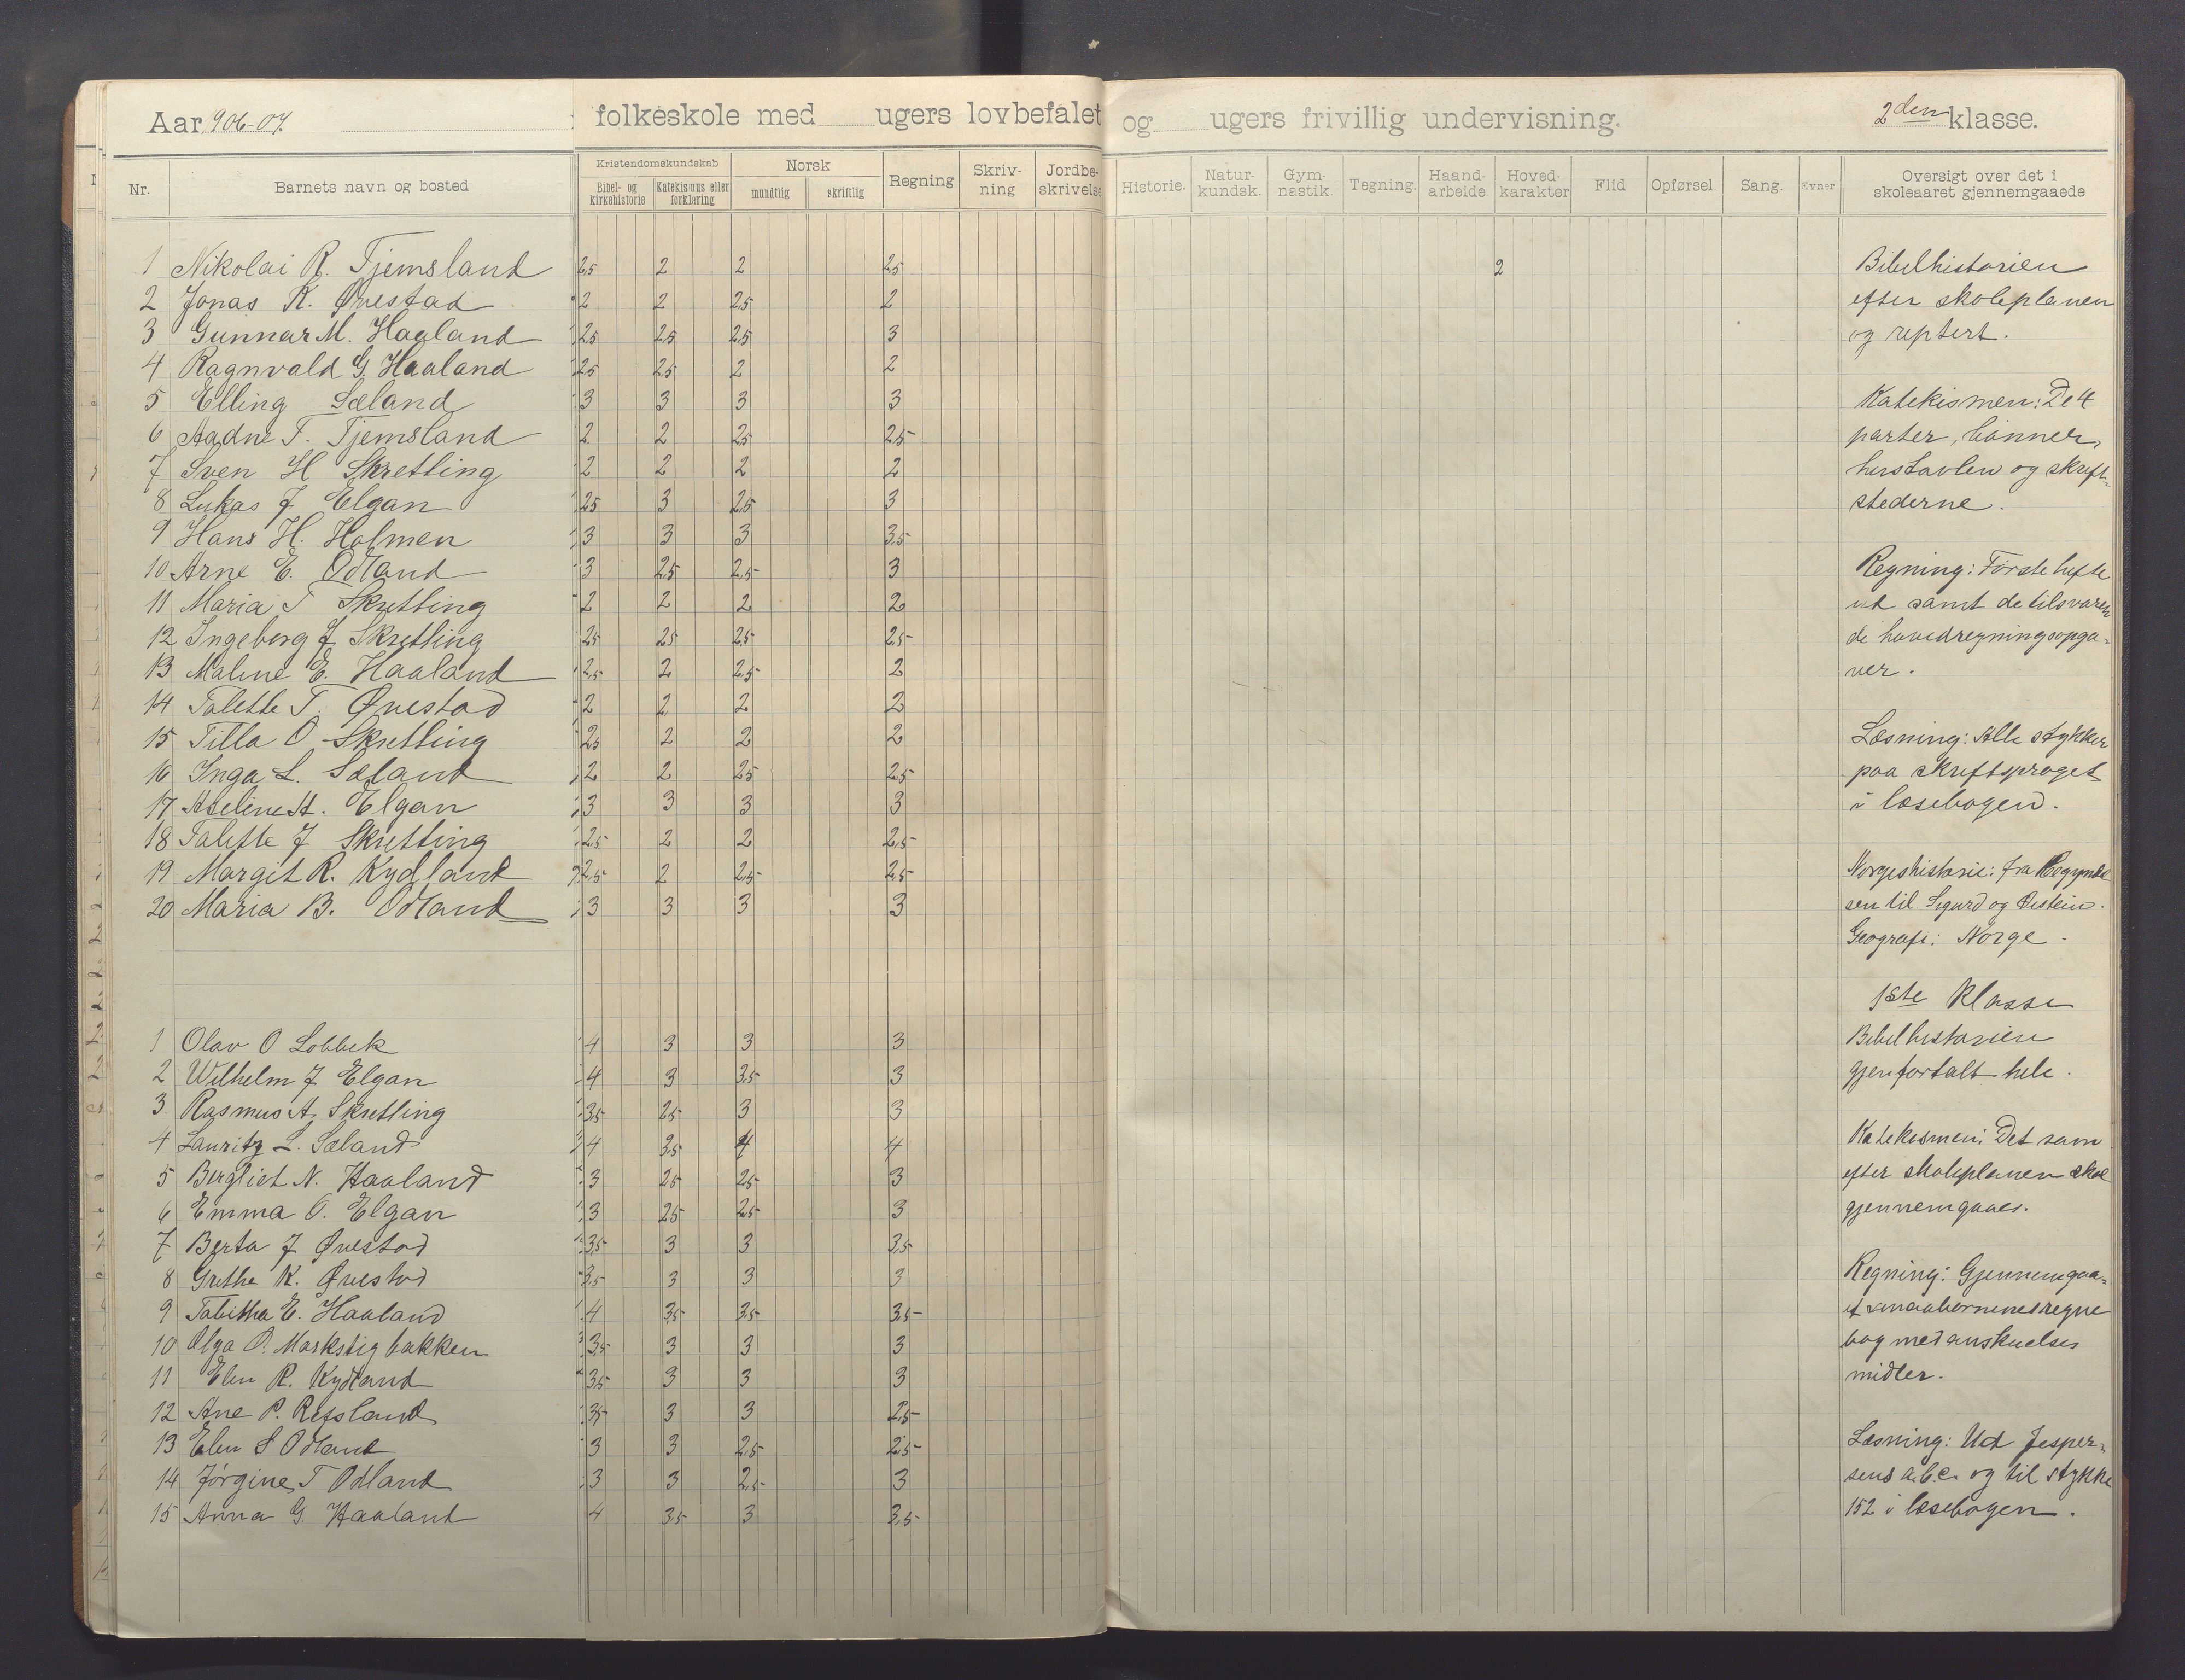 Aar 1906-07. folkeskole med ugers lovbefalet og ugers frivillig undervisning. 2den klasse.
Nr. Barnets navn og bosted Kristendomskundskab Bibel- og kirkehistorie Katekismus eller forklaring Norsk mundtlig skriftlig Regning Skriv-ning Jordbe-skrivelse Historie. Natur-kundsk. Gym-nastik. Tegning. Haand-arbeide Hoved-karakter Flid Opførsel. Sang. Evner Oversigt over det i skoleaaret gjennemgaaede
1 Nikolai R. Tjemsland 2,5 2 2 2,5 2 Bibelhistorien
2 Jonas K. Øvestad 2 2 2,5 2 efter skoleplanen
3 Gunnar M. Haaland 2,5 2,5 2,5 3 og reptert.
4 Ragnvald G. Haaland 2,5 2,5 2 2
5 Elling Sæland 3 3 3 3 Katekismen: De 4
6 Aadne T. Tjemsland 2 2 2,5 2,5 parter, bønner,
7 Sven H Skretting 2 2 2 2 hustavlen og skrift-
8 Lukas J Elgan 2,5 3 2,5 3 stederne.
9 Hans H. Holmen 3 3 3 3,5
10 Arne E. Odland 3 2,5 2,5 3 Regning: Første hefte
11 Maria T Skretting 2 2 2 2 ud samt de tilsvaren
12 Ingeborg J. Skretting 2,5 2,5 2,5 2,5 de hovedregningsopga-
13 Maline E. Haaland 2,5 2 2,5 2 ver.
14 Talette T. Øvestad 2 2 2 2
15 Tilla O Skretting 2,5 2 2 2 Læsning: Alle stykker
16 Inga L. Sæland 2 2 2,5 2,5 paa skriftsproget
17 Aseline A. Elgan 3 3 3 3 i læsebogen.
18 Talette J Skretting 2,5 2 2 2,5
19 Margit R. Kydland 2,5 2 2,5 2,5 Norgeshistorie: fra Begyndel
20 Maria B. Odland 3 3 3 3 sen til Sigurd og Østein.
Geografi: Norge.
1ste Klasse
1 Olav O Lobbek 4 3 3 3 Bibelhistorien
2 Wilhelm J Elgan 4 3 3,5 3 gjenfortalt hele.
3 Rasmus A. Skretting 3,5 2,5 3 3
4 Lauritz L. Sæland 4 3,5 4 4 Katekismen: Det som
5 Bergliot N. Haaland 3 2,5 2,5 3 efter skoleplanen skal
6 Emma O. Elgan 3 2,5 2,5 3 gjennemgaaes.
7 Berta J Øvestad 3,5 3 3 3,5
8 Grethe K. Øvestad 3,5 3 3 3 Regning: Gjennemgaa-
9 Tabitha E. Haaland 4 3,5 3,5 3,5 et smaabørnenes regne
10 Olga O. Markstigbakken 3,5 3 3 3 bog med anskuelses
11 Elen R. Kydland 3,5 3 3 3 midler.
12 Ane P. Refsland 3,5 3 3 2,5
13 Elen S Odland 3 3 2,5 2,5 Læsning: Ud Jesper-
14 Jørgine T Odland 3 3 2,5 3 sens a.b.c. og til stykke
15 Anna G. Haaland 4 3,5 3 3,5 152 i læsebogen.